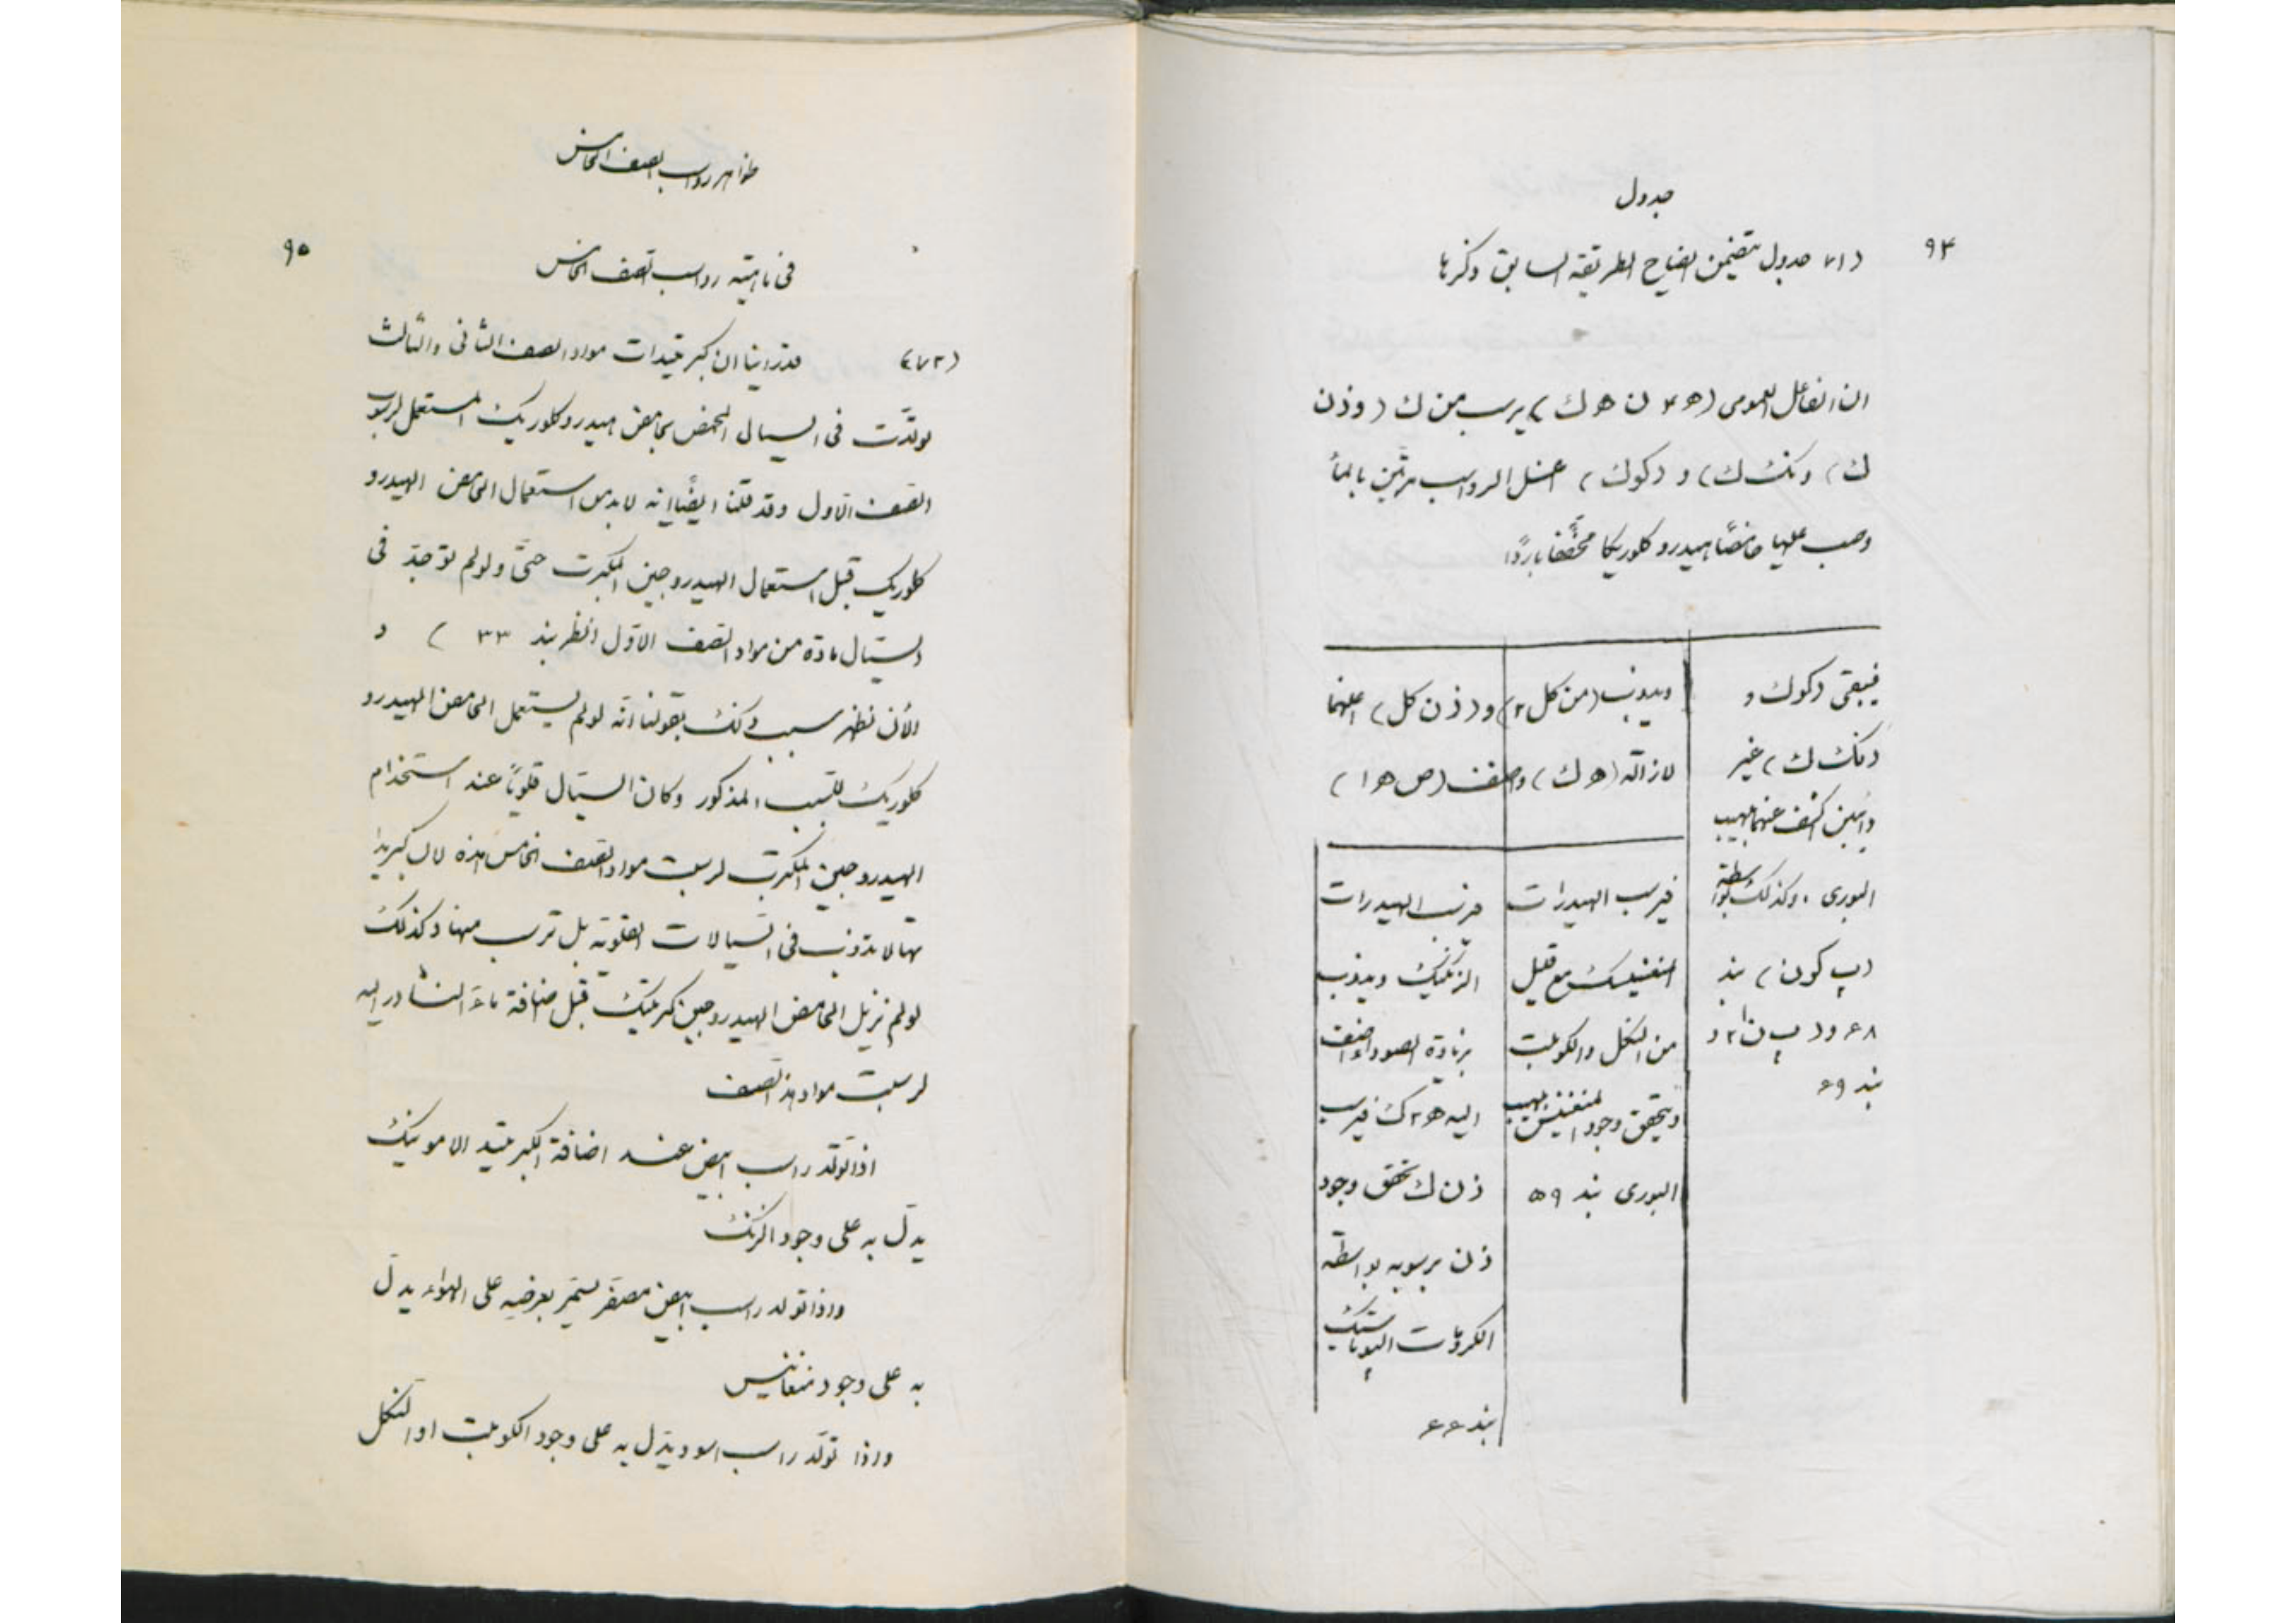 جدول
٩٤
(٧١) جدول يتضمن ايضاح الطريقه السابق ذكرها
ان الفاعل العمومى (ه ٤ ن ه ك) يرسب من ك (وذن
ك) ونك ك) و (كوك) اغسل الرواسب مرتين بالماء
وصب عليها حامضًا هيدروكلوريكا مخففا باردًا
فيبقى (كوك و
(نك ك) غير
ذائبين اكشف عنهما بلهيب
البورى . وكذلك بواسطة
(پ كون) بند
٦٨ و(پ ن ٢١ و
بند ٦٩
ويذوب (من كل ٢) و(ذن كل) اغلهما
لازالة (ه ك) واضف (ص ه ١)
فيرسب الهيدرات
المنغنيسك مع قليل
من النكل والكوبلت
ويتحقق وجود المنغنيس بلهيب
البورى بند ٥٩
فيرسب الهيدرات
الزنكيك ويذوب
بزيادة الصودا اضف
اليه ه ٢ ك فيرسب
ذن ك تحقق وجود
ذن برسوبه بواسطة
الكرومات البوتاسيك
بند ٦٦
ظواهر رواسب الصف الخامس
٩٥
فى ماهيّة رواسب الصف الخامس
(٧٢) قدراينا ان كبريتيدات مواد الصف الثانى والثالث
تولدّت فى السيال المحمض بحامض هيدروكلوريك المستعمل لرسوب
الصف الاول وقد قلنا ايضًا انه لابد من استعمال الحامض الهيدرو
كلوريك قبل استعمال الهيدروجين المكبرت حتى ولو لم توجد فى
السيّال مادة من مواد الصف الاوّل انظر بند ٣٣ ) و
الأن نظهر سبب ذلك بقولنا انّه لو لم يستعمل الحامض الهيدرو
كلوريك للسبب المذكور وكان السيّال قلويًا عند استخدام
الهيدروجين المكبرت لرسبت مواد الصف الخامس هذه لان كبريتيدا
تها لا تذوب فى السيالات القلويّة بل ترسب منها وكذلك
لو لم نزيل الحامض الهيدروجين كبريتيك قبل اضافة ماء النشادر اليه
لرسبت مواد هذا الصف
اذا تولّد راسب ابيض عند اضافة الكبريتيد الامونيك
يدلّ به على وجود الزنك
واذا تولد راسب ابيض مصفر يسمر بعرضه على الهواء يدلّ
به على وجود منغانيس
واذا تولّد راسب اسود يدّل به على وجود الكوبلت او النكل